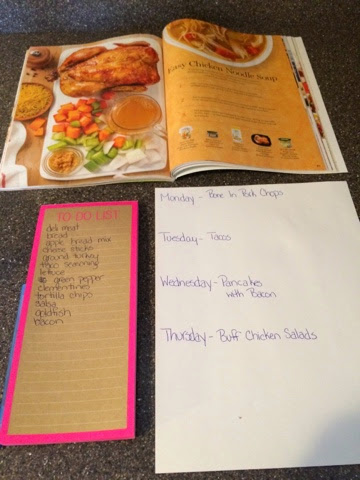 Easy Chicken Noodle Soup
TO DO LIST
deli meat
bread
apple bread mix
cheese sticks
ground turkey
taco seasoning
lettuce
green pepper
clementines
tortilla chips
salsa
goldfish
bacon
Monday - Bone In Pork Chops
Tuesday - Tacos
Wednesday - Pancakes
with Bacon
Thursday - Buff Chicken Salads